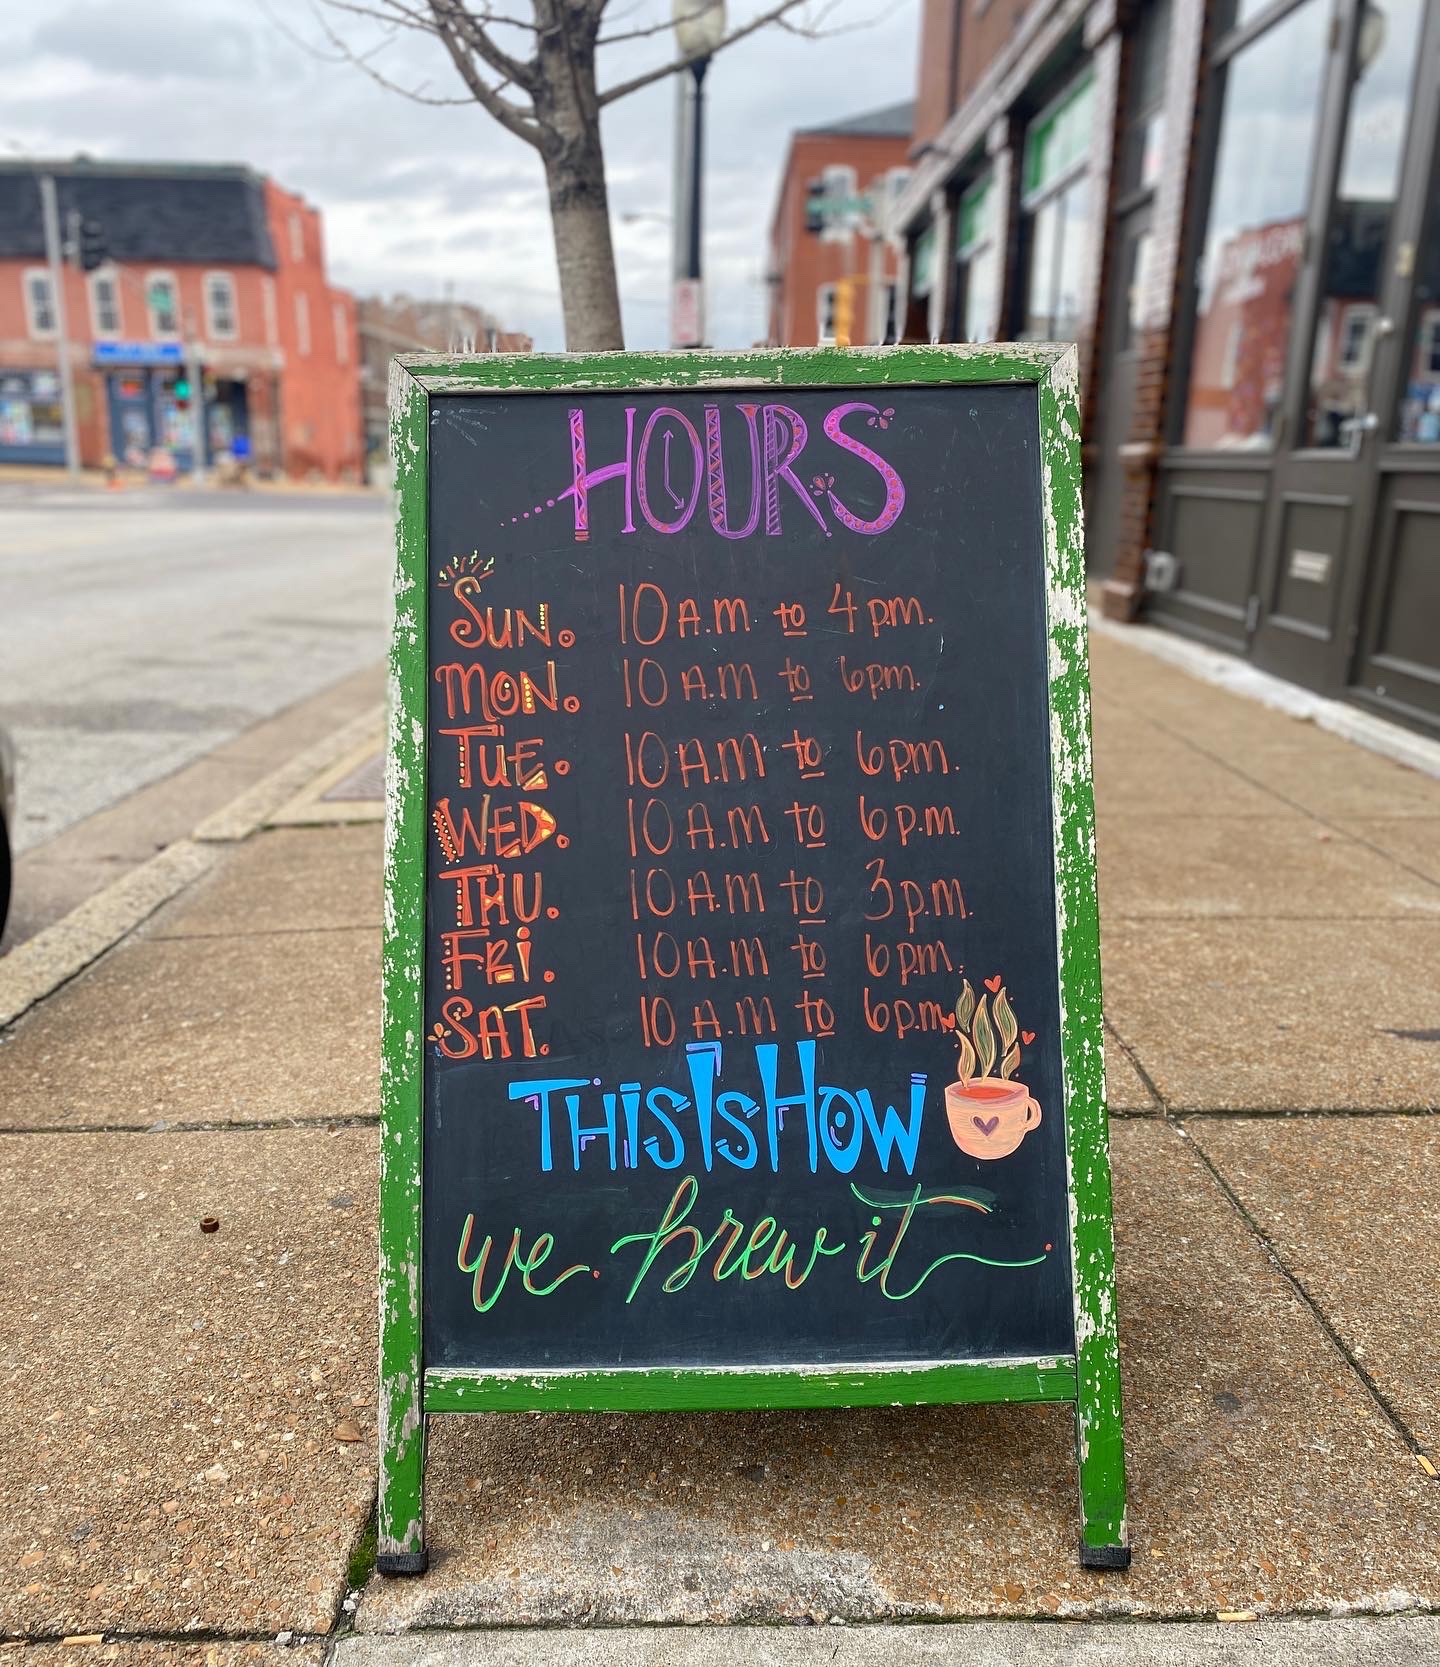 HOURS
SUN. 10 A.M. to 4 p.m.
MON. 10 A.M to 6pm.
TUE. 10 A.M to 6p.m.
WED. 10 A.M to 6p.m.
THU. 10 A.M to 3p.m.
FRI. 10 A.M to 6p.m.
SAT. 10 A.M to 6p.m.
THIS IS HOW
we brew it